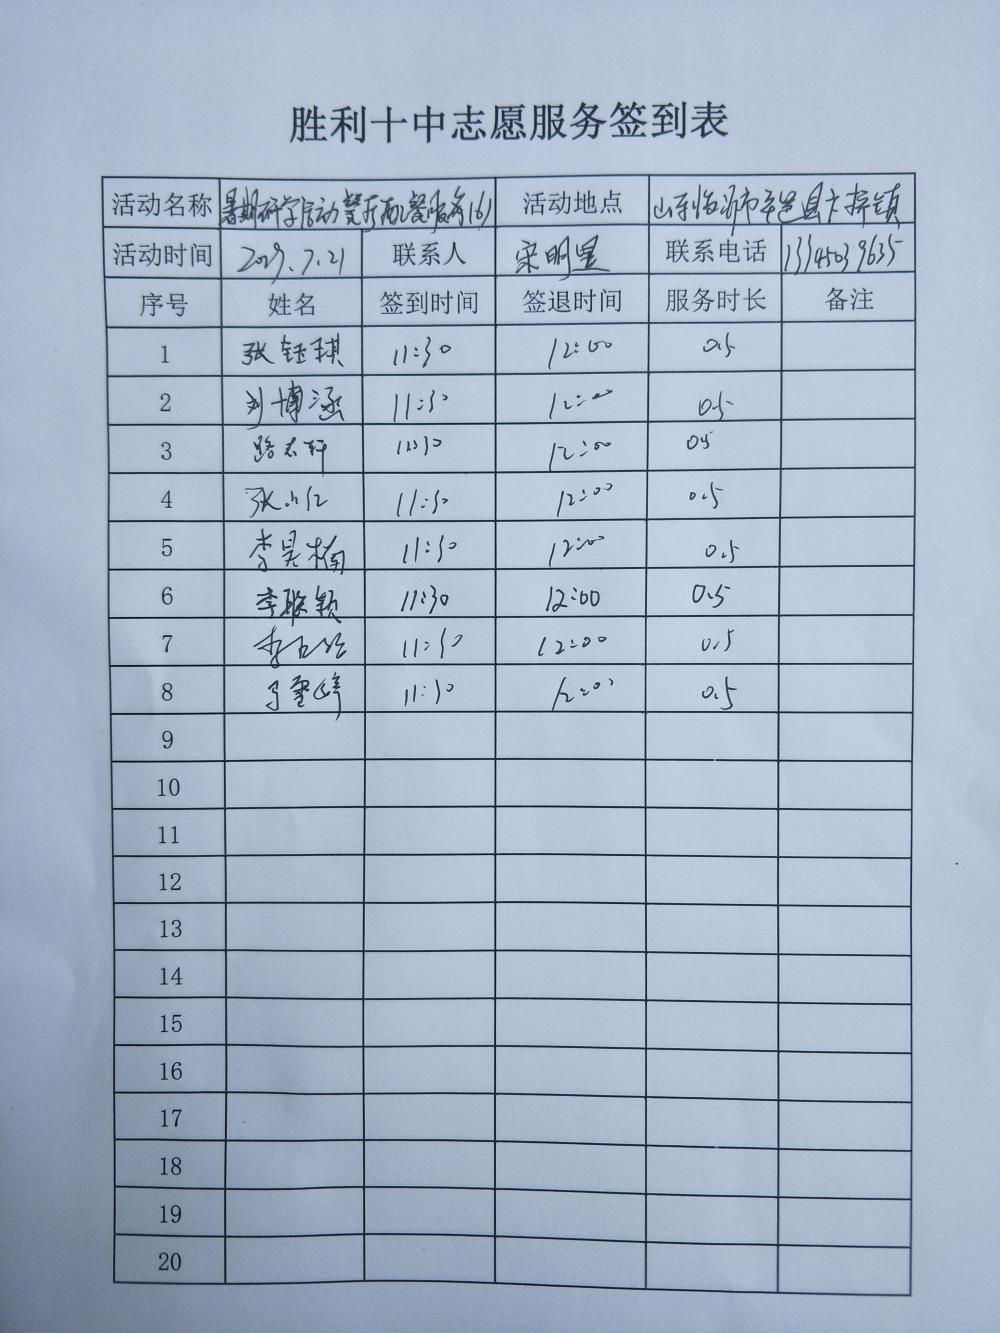 胜利十中志愿服务签到表
活动名称 暑期研学活动餐厅配餐服务(6) 活动地点 山东临沂市平邑县卞桥镇
活动时间 7.21 联系人 宋明星 联系电话 13345039635
序号 姓名 签到时间 签退时间 服务时长 备注
1 张钰琪 11:30 12:00 0.5
2 刘博涵 11:30 12:00 0.5
3 11:30 12:00 0.5
4 11:30 12:00 0.5
5 李昊楠 11:30 12:00 0.5
6 11:30 12:00 0.5
7 11:30 12:00 0.5
8 11:30 12:00 0.5
9
10
11
12
13
14
15
16
17
18
19
20